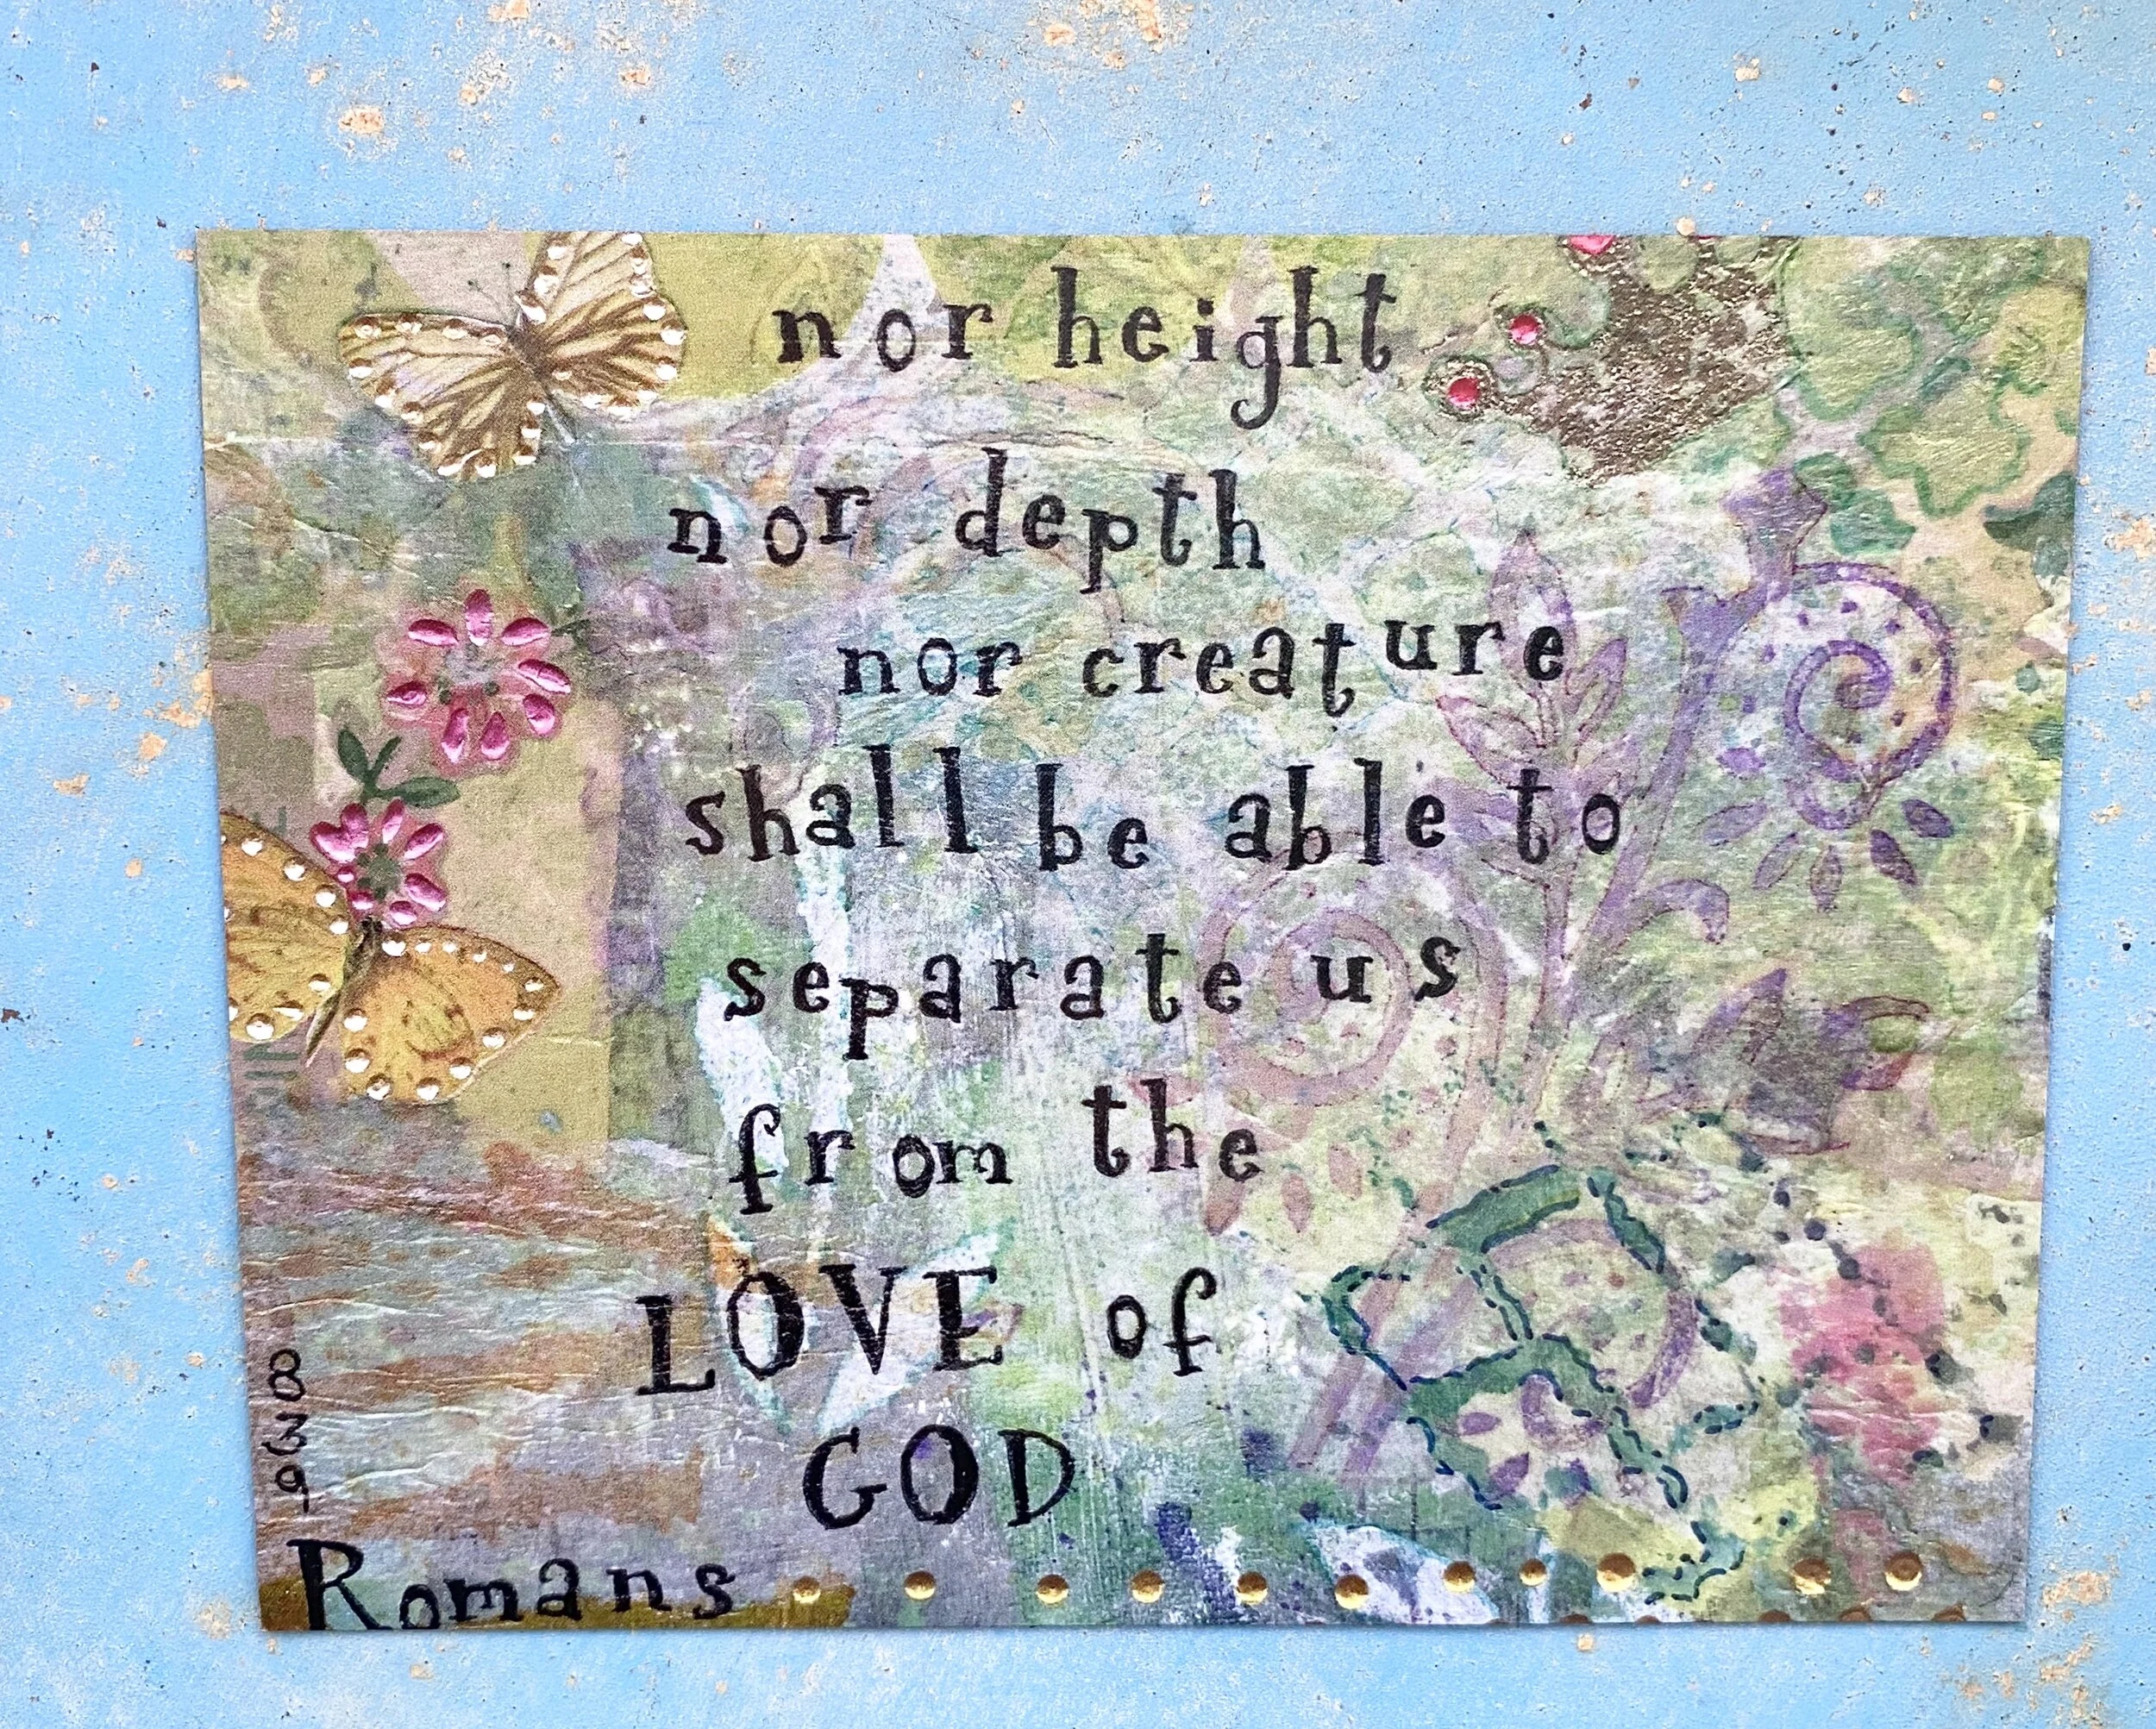 nor height
nor depth
nor creature
shall be able to
separate us
from the
LOVE of
GOD
Romans